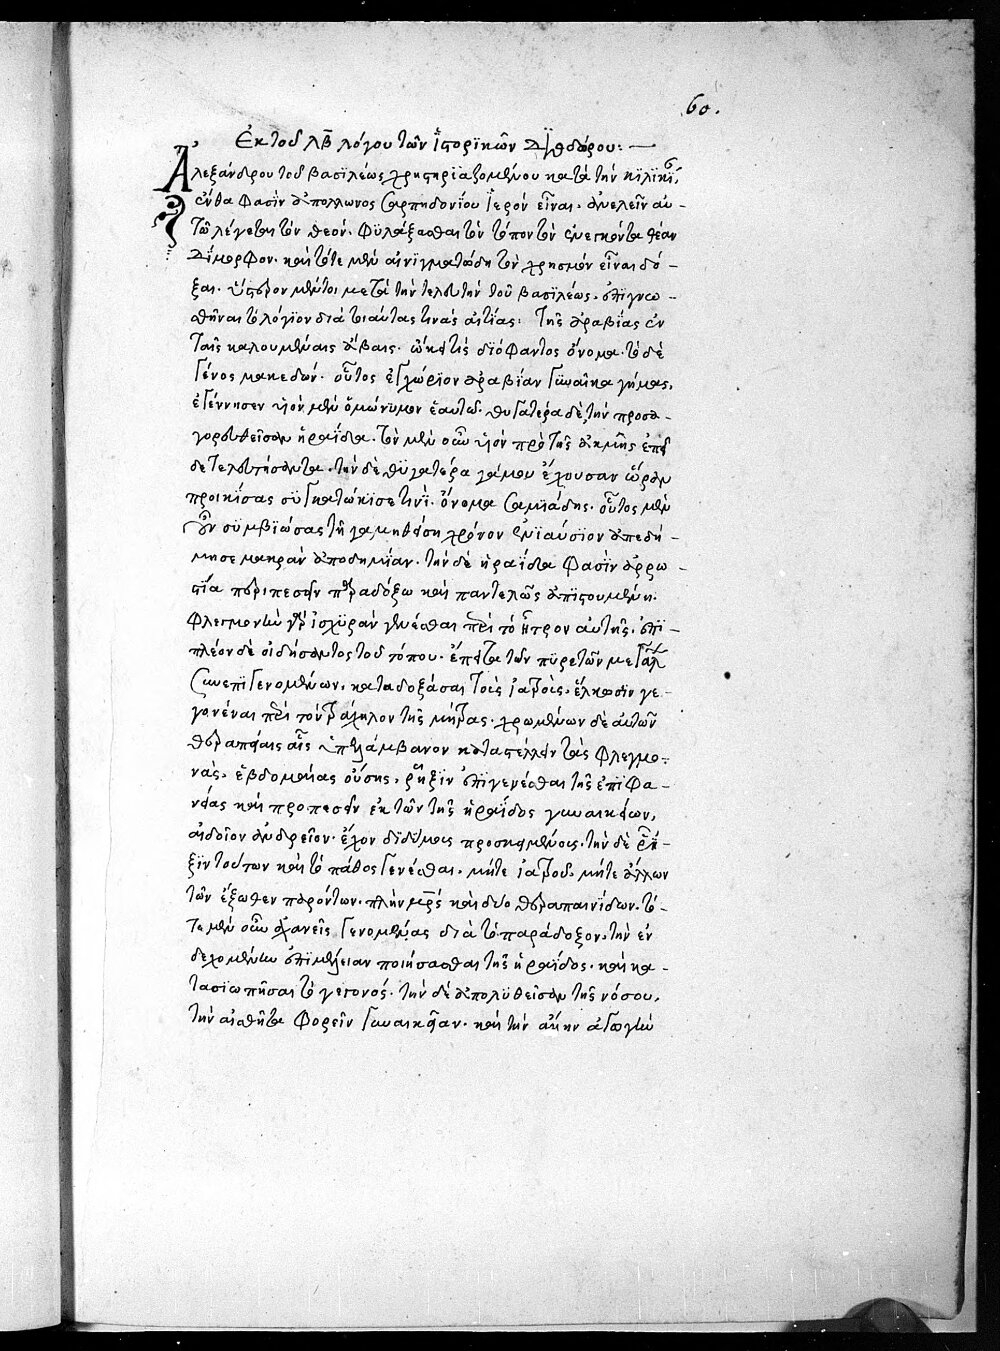 60.
Ἐκ τοῦ ΛΒ λόγου τῶν ἱστορικῶν Διοδώρου:—
Ἀλεξάνδρου τοῦ βασιλέως χρηστηριαζομένου κατὰ τὴν κιλικίαν,
ἔνθα φασὶν ἀπόλλωνος σαρπηδονίου ἱερὸν εἶναι. ἀνελεῖν αυ-
τῶ λέγεται τὸν θεὸν. φυλάξασθαι τὸν τόπον τὸν ἐνεγκόντα θέαν
δίμορφον. καὶ τότε μὲν αἰνιγματώδη τὸν χρησμὸν εἶναι δό-
ξαι. ὕστερον μέντοι μετὰ τὴν τελευτὴν τοῦ βασιλέως. ἐπιγνω-
σθῆναι τὸ λόγϊον διὰ τοιαύτας τινὰς αἰτίας: τῆς ἀραβίας ἐν
ταῖς καλουμέναις ἄβαις. ὤκει τὶς διόφαντος ὄνομα. τὸ δὲ
γένος μακεδών. οὗτος ἐγχώριον ἀραβίαν γυναῖκα γήμας,
ἐγέννησεν υἱὸν μὲν ὁμώνυμον ἑαυτῶ. θυγατέρα δὲ, τὴν προσα-
γορευθεῖσαν ἡραΐδα. τὸν μὲν οὖν υἱὸν πρὸ τῆς ἀκμῆς ἐπεῖ
δε τελευτήσαντα. τὴν δὲ θυγατέρα γάμου ἔχουσαν ὥραν
προικίσας συγκατώκισε τινὶ. ὄνομα σαμιάδης. οὗτος μὲν
οὖν συμβιώσας τῆ γαμηθείση χρόνον ἐνιαύσιον ἀπεδή-
μησε μακρὰν ἀποδημίαν. τὴν δὲ ἡραΐδα φασὶν ἀρρω-
στία περιπεσεῖν παραδόξω καὶ παντελῶς ἀπιστουμένη.
φλεγμονὴν γὰρ ἰσχϋρὰν γενέσθαι περὶ τὸ ἦτρον αυτῆς. ἐπὶ-
πλέον δὲ οἰδήσαντος τοῦ τόπου. ἔπειτα τῶν πυρετῶν μεγάλων
συνεπιγενομένων, καταδοξάσαι τοὺς ἰατροὺς. ἕλκωσιν γε-
γονέναι περὶ τὸν τράχηλον τῆς μήτρας. χρωμένων δὲ αὐτῶν
θεραπείαις αἷς ὑπελάμβανον καταστέλλειν τὰς φλεγμο-
νὰς. ἑβδομαίας οὔσης, ῥῆξιν ἐπιγενέσθαι τῆς ἐπιφα-
νείας καὶ προπεσεῖν ἐκ τῶν τῆς ἡραΐδος γυναικείων,
αἰδοῖον ἀνδρεῖον. ἔχον διδύμους προσκειμένους. τὴν δὲ ῥῆ-
ξιν τούτων καὶ τὸ πάθος γενέσθαι. μήτε ἰατροῦ. μήτε ἄλλων
τῶν ἔξωθεν παρόντων. πλὴν μρς καὶ δύο θεραπαινίδων. τό-
τε μὲν οὖν ἀχανεῖς γενομένας διὰ τὸ παράδοξον, τὴν ἐν
δεχομένην ἐπιμέλειαν ποιήσασθαι τῆς ἡραΐδος. καὶ κα-
τασιωπῆσαι τὸ γεγονός. τὴν δὲ ἀπολυθεῖσαν τῆς νόσου,
τὴν αἰσθῆτα φορεῖν γυναικείαν. καὶ τὴν ἄλλην ἀγωγὴν